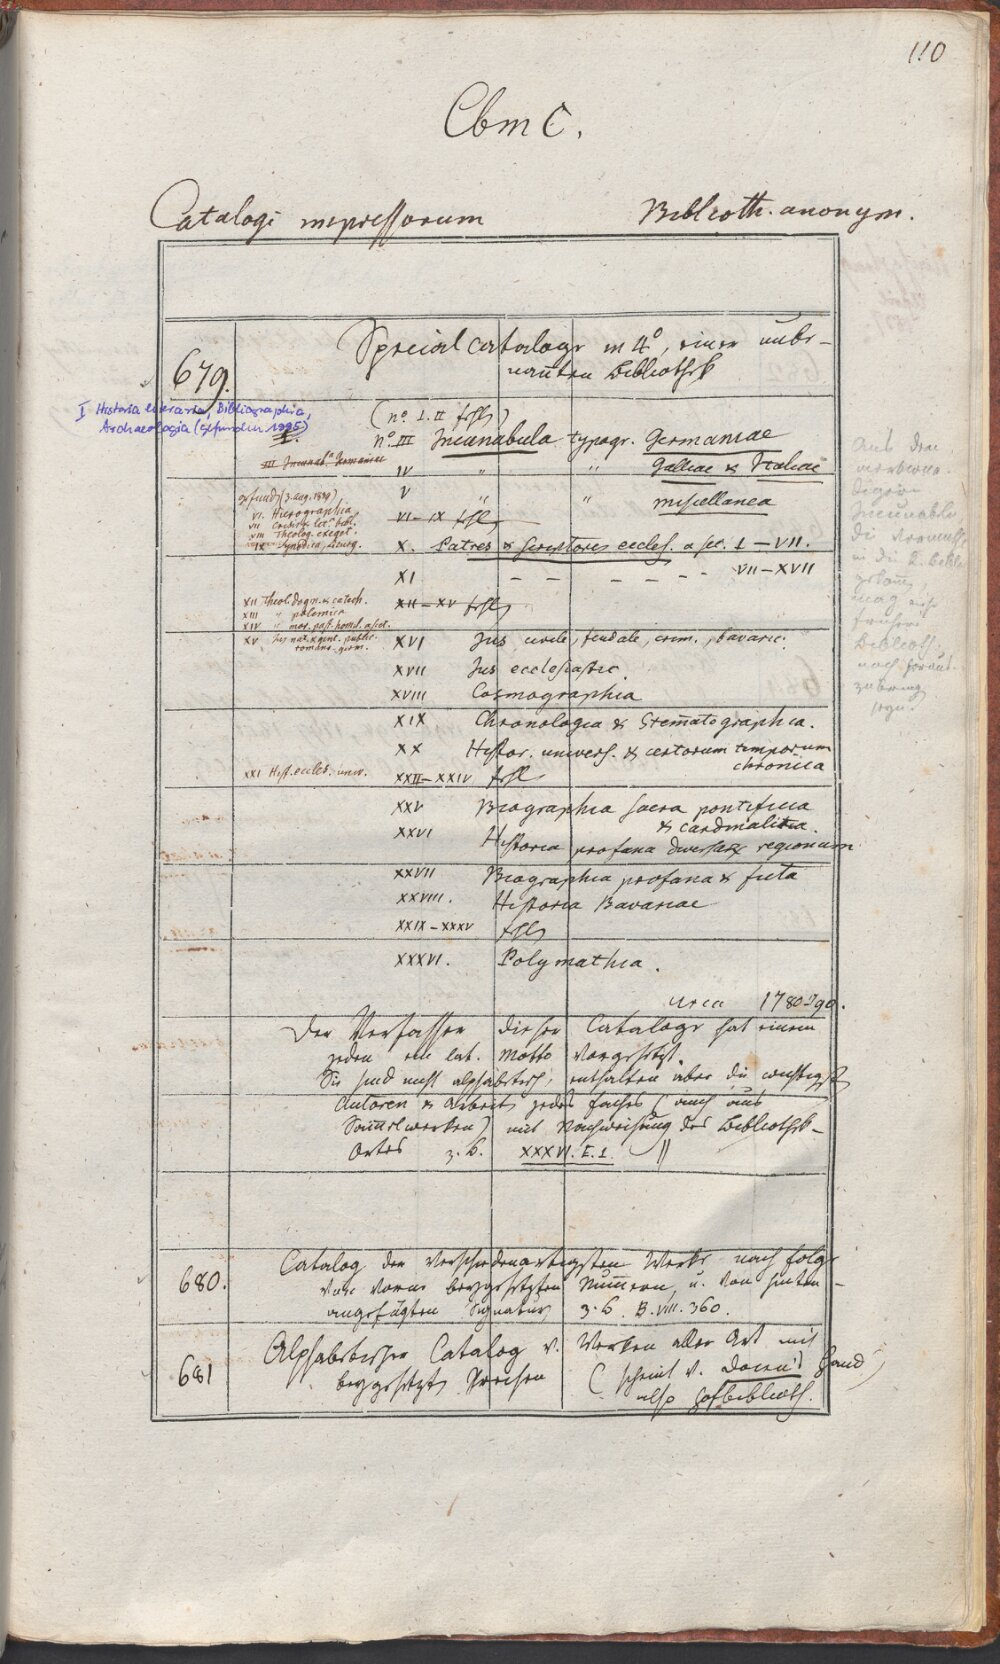 110
Cbm C.
Catalogi impressorum Biblioth. anonym.
679. Specialcataloge in 4°, einer unbe-
nañten Bibliothek
I Historia literaria, Bibliographia,
Archaeologia (gefunden 1995)
(n° I. II fehlt)
n° III Incunabula typogr. Germaniae
III Incunab. Germaniae
IV " " Galliae & Italiae
V " " miscellanea
gefunden (3. Aug. 1899)
VI. Hierographia
VII
VIII Theolog. exeget.
IX Synodica, Liturg.
VI–IX fehlen
X. Patres & Scriptores eccles. a sec. I–VII.
XI – – – – – – VII–XVII
XII Theol. dogm. & catech.
XIII " polemica
XIV " mor. past. homil. ascet.
XV Jus nat. & gent. public.
romano-germ.
XII–XV fehlen
XVI Jus civile, feudale, crim., bavaric.
XVII Jus ecclesiastic.
XVIII Cosmographia
XIX Chronologia & Stem̃atographia.
XX Histor. univers. & certorum temporum
chronica
XXI Hist. eccles. univ.
XXII–XXIV fehlt
XXV Biographia sacra pontificia
& cardinalitia.
XXVI Historia profana diversar. regionum
XXVII Biographia profana & ficta
XXVIII. Historia Bavariae
XXIX–XXXV fehlen
XXXVI. Polymathia.
circa 1780–90.
Der Verfasser dieser Cataloge hat einem
jeden ein lat. Motto vorgesetzt.
Sie sind nicht alphabetisch, enthalten aber die wichtigst
Autoren & Arbeit. jedes Faches (auch aus
Sam̃elwerken) mit Nachweisung des Bibliothek-
Ortes z. B. XXXVI. E. 1.
680. Catalog der verschiedenartigsten Werke nach folge
von vorne beygesetzten Num̃ern, u. von hinten
angefügten Signaturen z. B. B. VIII. 360.
681 Alphabetischer Catalog v. Werken aller Art mit
beygesetzten Preisen (scheint v. Docen's Hand
also Hofbiblioth.
Aus dem
Incunabeln
früheren
Biblioth.